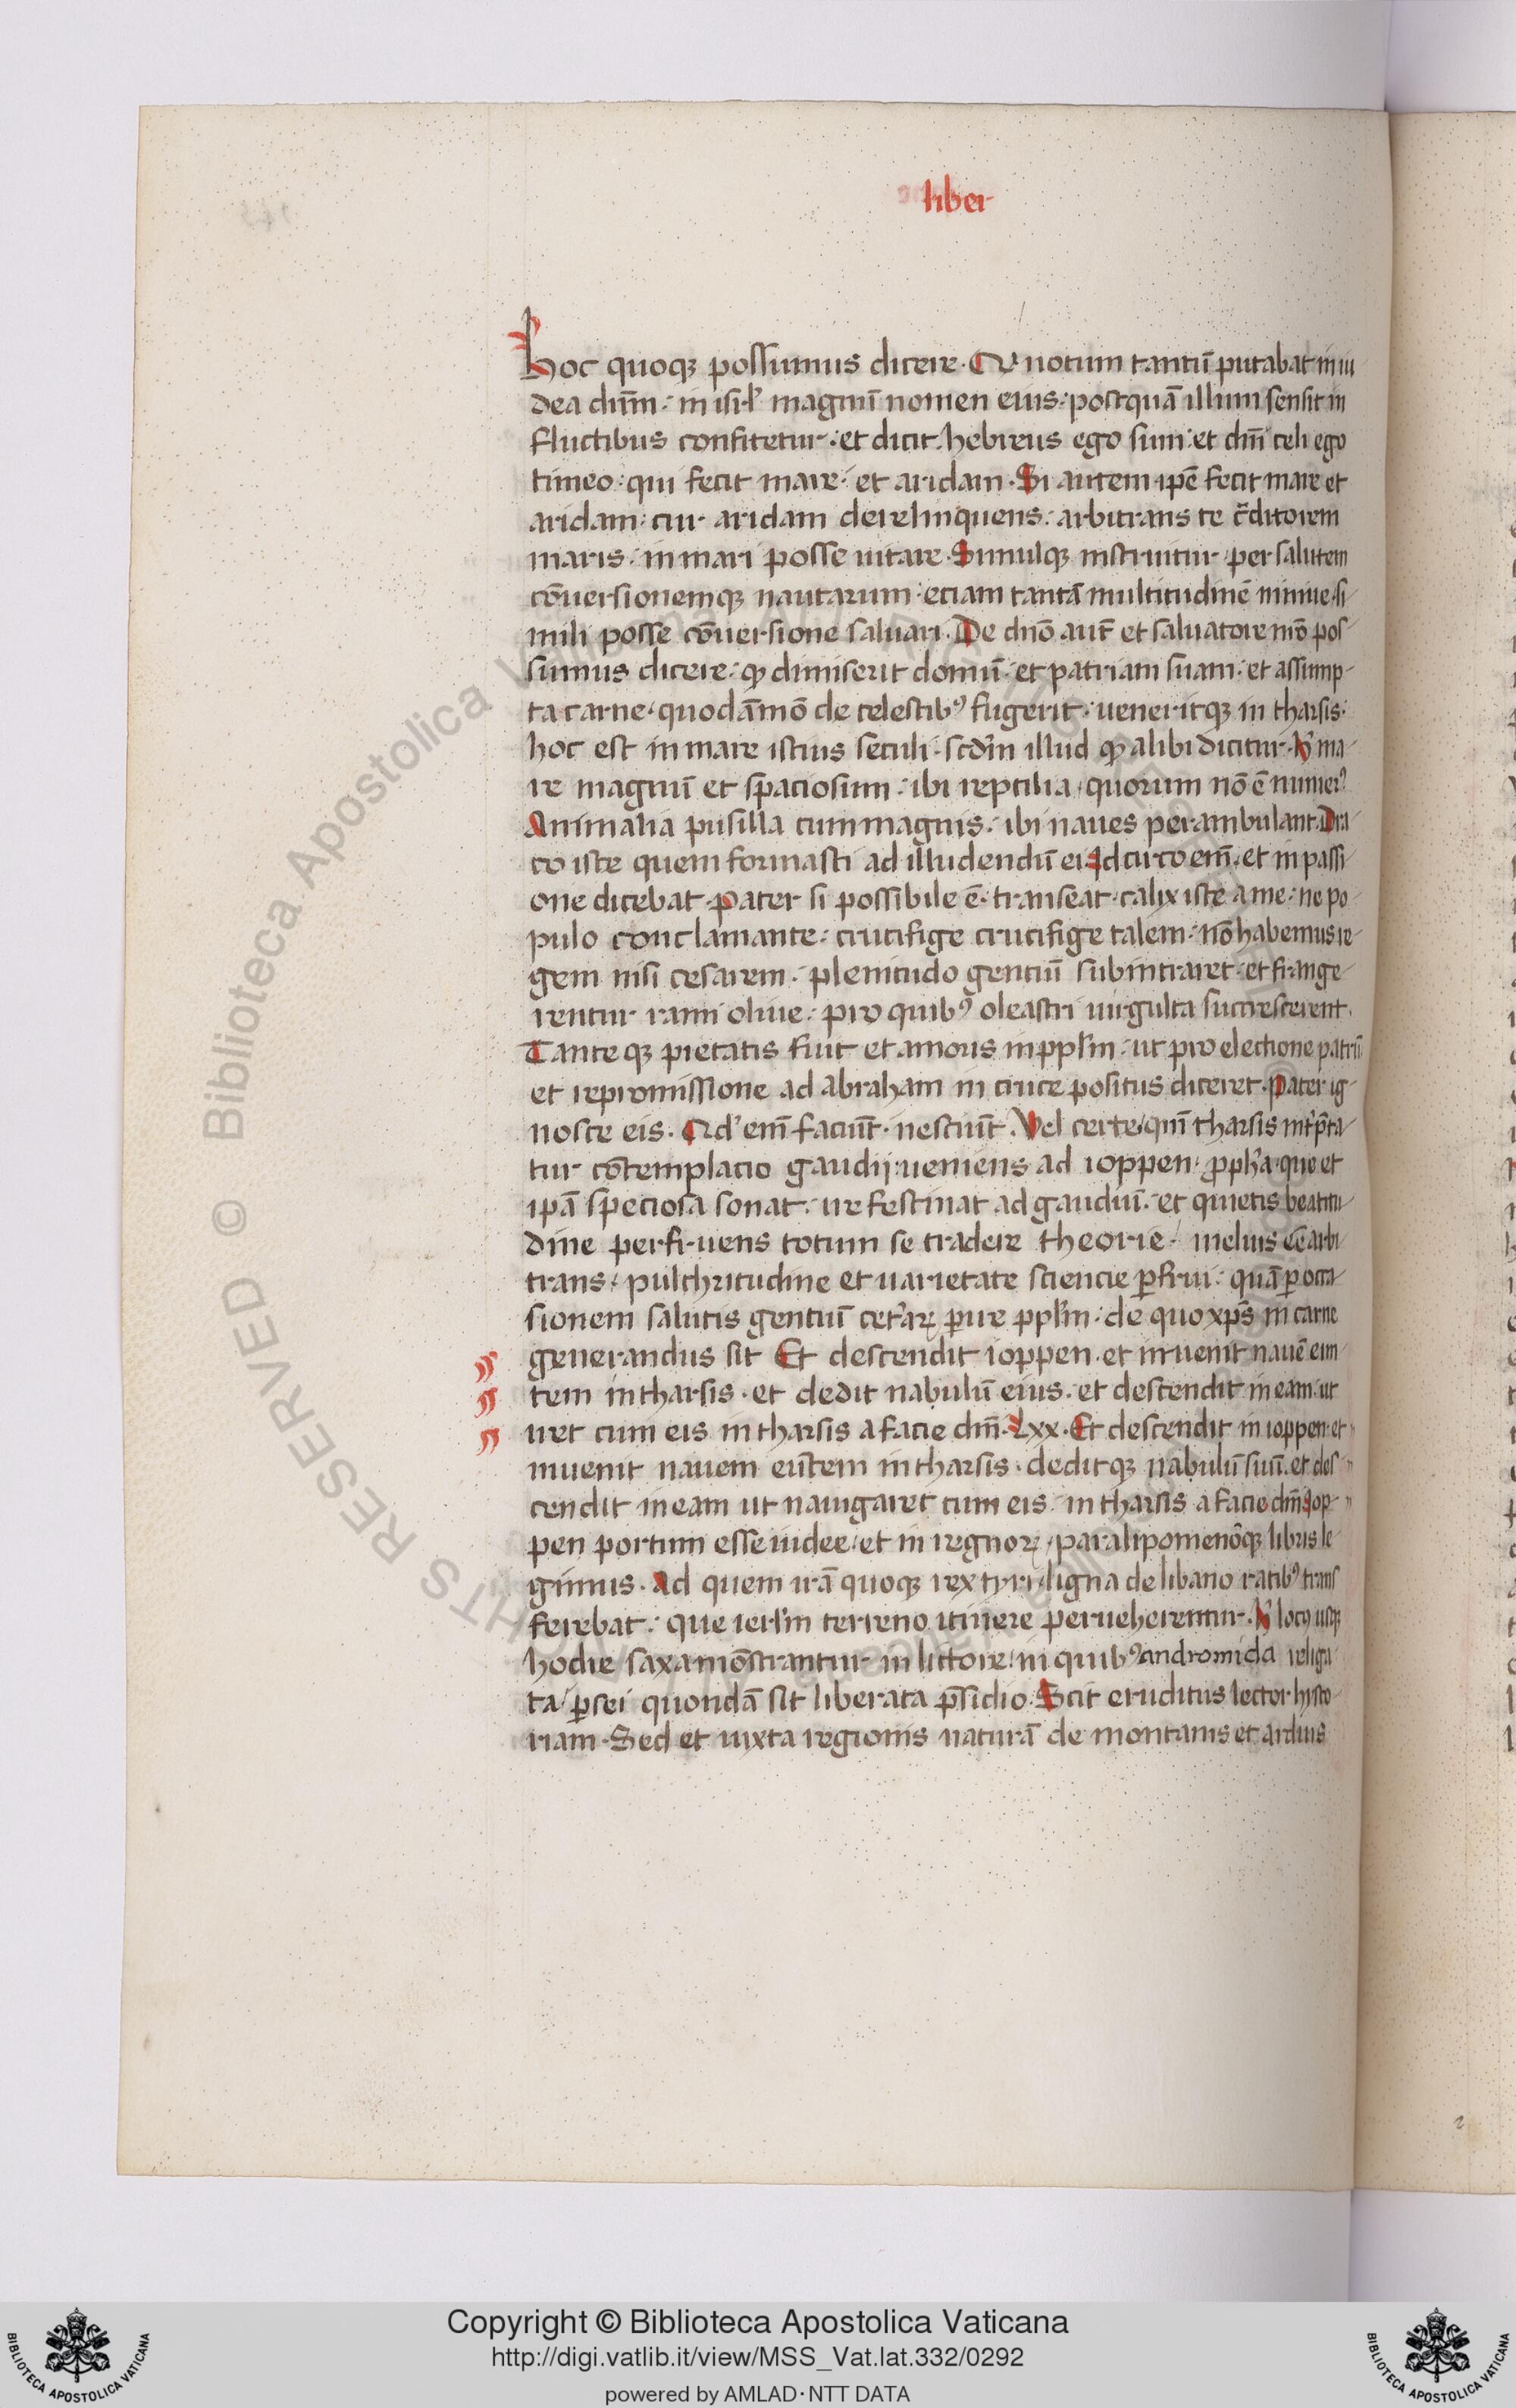 liber
hoc quoqꝫ possumus dicere. Qui notum tantū putabat in iu
dea dūm: in isrl magnū nomen eius: postquā illum sensit in
fluctibus confitetur: et dicit hebreus ego sum: et dn̄m celi ego
timeo: qui fecit mare: et aridam. Si autem ipē fecit mare et
aridam: cur aridam derelinquens: arbitrans te c̄ditorem
maris: in mari posse uitare. Simulqꝫ instruitur per salutem
cōuersionemqꝫ nautarum: etiam tantā multitudinē niniue si
mili posse cōuersione saluari. De dn̄o aut̄ et saluatore nr̄o pos
sumus dicere: qꝫ dimiserit domū: et patriam suam: et assump
ta carne quodāmō de celestibꝰ fugerit: ueneritqꝫ in tharsis:
hoc est in mare istius seculi: scdm illud qꝫ alibi dicitur. h̓ ma
re magnū et spaciosum: ibi reptilia quorum nō ē numerꝰ
Animalia pusilla cum magnis: ibi naues perambulant. Dra
co iste quem formasti ad illudendū ei. Idcirco em̄. et in passi
one dicebat. pater si possibile ē. transeat calix iste a me: ne po
pulo conclamante: crucifige crucifige talem: nō habemus re
gem nisi cesarem: plenitudo gentiū subintraret: et frange
rentur rami oliue: pro quibꝰ oleastri uirgulta succrescerent.
Tante qꝫ pietatis fuit et amoris in pplm: ut pro electione patrū
et repromissione ad abraham in cruce positus diceret. pater ig
nosce eis. Qd' em̄ faciūt. nesciūt. Vel certe qm̄ tharsis int̓p̄ta
tur cōtemplacio gaudij: ueniens ad ioppen ꝓph̓a que et
ipā speciosa sonat: ire festinat ad gaudiū. et quietis beatitu
dine perfruens totum se tradere theorie: melius eē arbi
trans pulchritudine et uarietate sciencie ꝑfrui: quā ꝑ occa
sionem salutis gentiū ceterarꝫ ꝑire pplm: de quo xp̄s in carne
generandus sit Et descendit ioppen. et inuenit nauē eun
tem in tharsis. et dedit nabulū eius. et descendit in eam ut
iret cum eis in tharsis a facie dn̄i. Lxx. Et descendit in ioppen et
inuenit nauem eūtem in tharsis. deditqꝫ nabulū suū. et des
cendit in eam ut nauigaret cum eis in tharsis a facie dn̄i. Iop
pen portum esse iudee: et in regnorꝫ paralipomenōqꝫ libris le
gimus. Ad quem irā quoqꝫ rex tyri ligna de libano ratibꝰ trans
ferebat: que ierlm terreno itinere perueherentur. h̓ locꝰ usqꝫ
hodie saxa mōstrantur in littore: in quibꝰ andromida religa
ta ꝑsei quondā sit liberata p̄sidio. Scit eruditus lector histo
riam. Sed et iuxta regionis naturā de montanis et arduis
Copyright © Biblioteca Apostolica Vaticana
http://digi.vatlib.it/view/MSS_Vat.lat.332/0292
powered by AMLAD·NTT DATA